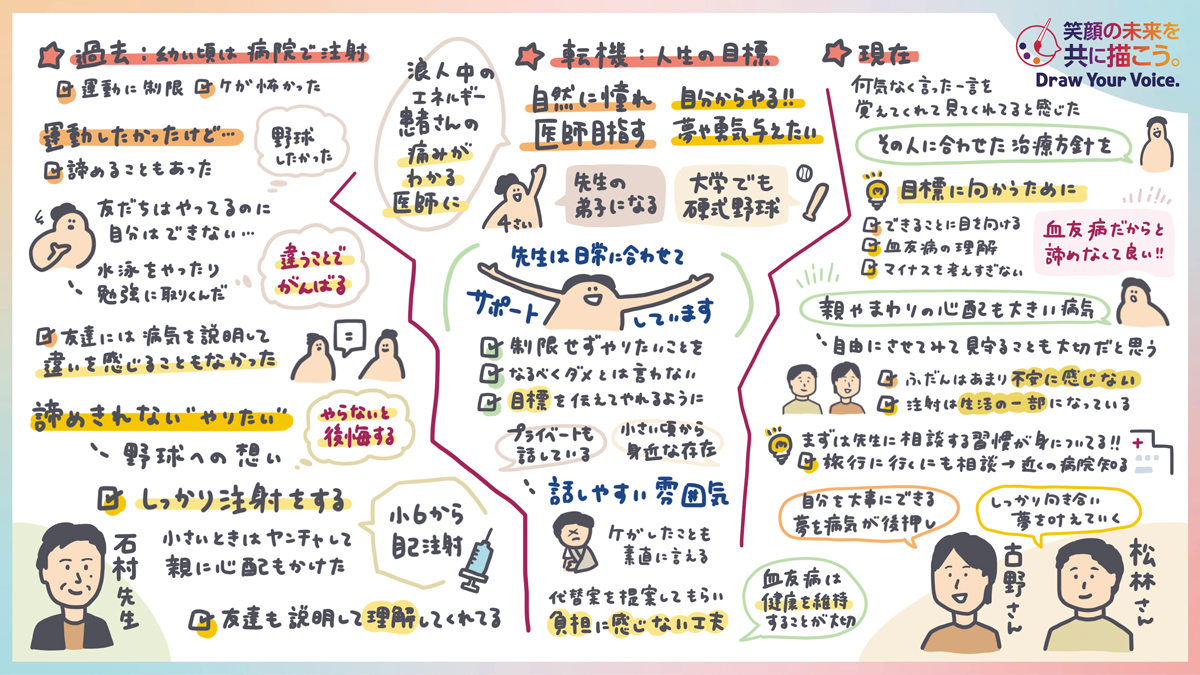 笑顔の未来を
共に描こう。
Draw Your Voice.
過去：幼い頃は病院で注射
運動に制限
ケガ怖かった
運動したかったけど…
諦めることもあった
野球
したかった
友だちはやってるのに
自分はできない…
水泳をやったり
勉強に取りくんだ
違うことで
がんばる
友達には病気を説明して
違いを感じることもなかった
=
諦めきれない"やりたい"
野球への想い
やらないと
後悔する
しっかり注射をする
石村先生
小さいときはヤンチャして
親に心配もかけた
小6から
自己注射
友達も説明して理解してくれてる
浪人中の
エネルギー
患者さんの
痛みが
わかる
医師に
転機：人生の目標
自然に憧れ
医師目指す
自分からやる!!
夢や勇気与えたい
4さい
先生の
弟子になる
大学でも
硬式野球
先生は日常に合わせて
サポート
しています
制限せずやりたいことを
なるべくダメとは言わない
目標を伝えてやれるように
プライベートも
話している
小さい頃から
身近な存在
話しやすい雰囲気
ケガしたことも
素直に言える
代替案を提案してもらい
負担に感じない工夫
血友病は
健康を維持
することが大切
現在
何気なく言った一言を
覚えてくれて見てくれてると感じた
その人に合わせた治療方針を
目標に向かうために
できることに目を向ける
血友病の理解
マイナスを考えすぎない
血友病だからと
諦めなくて良い!!
親やまわりの心配も大きい病気
自由にさせてみて見守ることも大切だと思う
ふだんはあまり不安に感じない
注射は生活の一部になっている
まずは先生に相談する習慣が身についてる!!
旅行に行くにも相談→近くの病院知る
自分を大事にできる
夢を病気が後押し
しっかり向き合い
夢を叶えていく
古野さん
松林さん